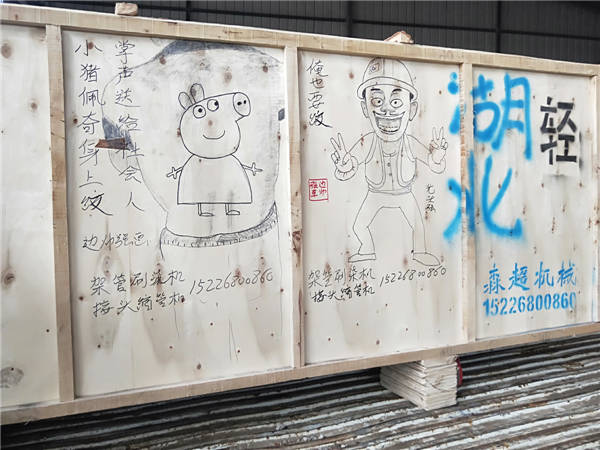 小猪佩奇身上纹
掌声送给社会人
架管刷漆机
接头缩管机
15226800860
俺也要纹
光头强
架管刷漆机
接头缩管机
15226800860
湖北
轻
森超机械
15226800860